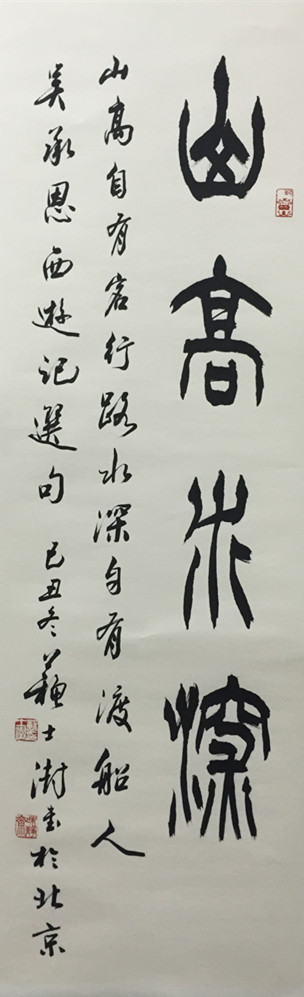 山高水深
山高自有客行路水深自有渡船人
吴承恩西遊记選句 己丑冬 苏士澍书於北京